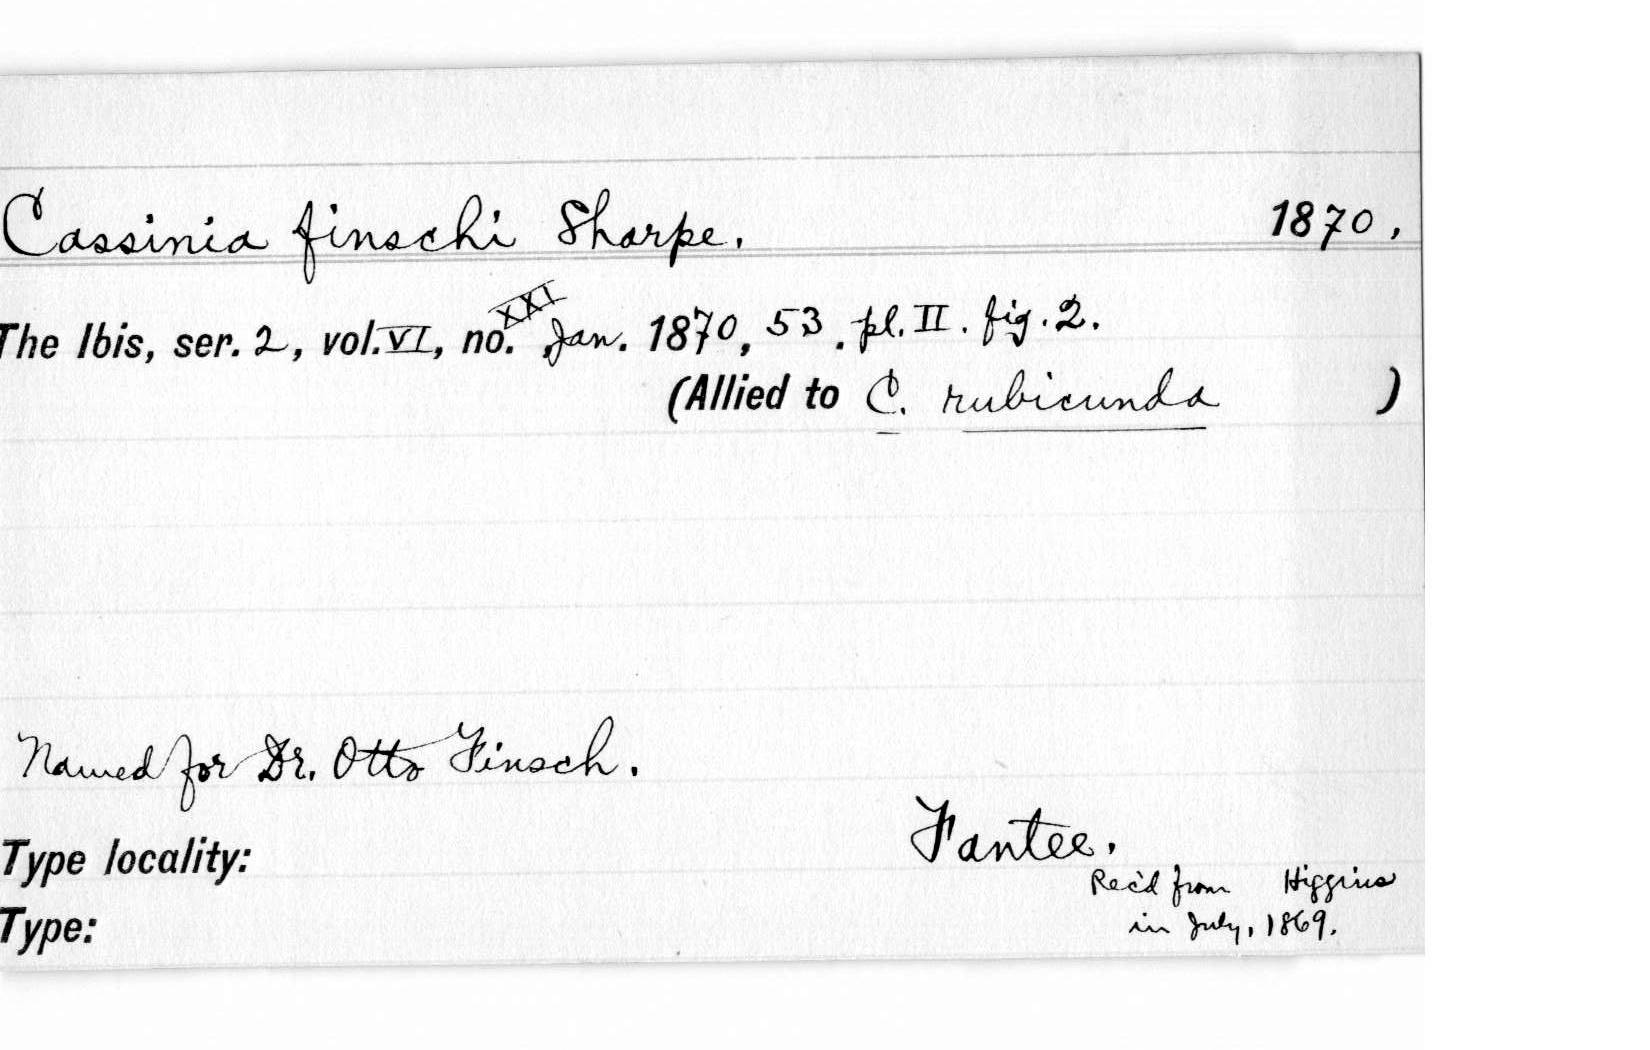 Cassinia finschi Sharpe. 1870.
The Ibis, ser. 2, vol. VI, no. XXI, Jan. 1870, 53. pl. II. fig. 2.
(Allied to C. rubicunda )
Named for Dr. Otto Finsch.
Fantee.
Type locality:
Rec'd from Higgins
Type:
in July, 1869.